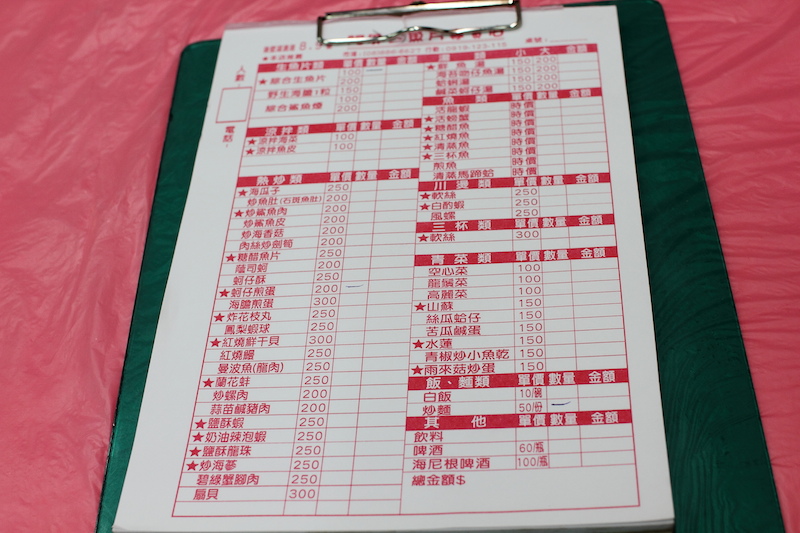 ★本店推薦
人數:
電話:
生魚片類 單價 數量 金額
100
★綜合生魚片 200
野生海膽1粒 150
100
綜合鯊魚煙 200
涼拌類 單價 數量 金額
★涼拌海菜 100
★涼拌魚皮 100
熱炒類 單價 數量 金額
★海瓜子 250
炒魚肚(石斑魚肚) 200
★炒鯊魚肉 200
炒鯊魚皮 200
炒海香菇 200
肉絲炒劍筍 200
★糖醋魚片 250
蔭司蚵 200
蚵仔酥 250
★蚵仔煎蛋 200
海膽煎蛋 300
★炸花枝丸 250
鳳梨蝦球 250
★紅燒鮮干貝 300
紅燒鰻 250
曼波魚(龍肉) 250
★蘭花蚌 200
炒螺肉 200
蒜苗鹹豬肉 200
★鹽酥蝦 250
★奶油辣泡蝦 250
★鹽酥龍珠 250
★炒海蔘 250
碧綠蟹腳肉 250
扇貝 300
湯 小 大 金額
★鮮魚湯 150 200
海苔吻仔魚湯 150 200
蛤蜊湯 150 200
鹹菜蚵仔湯 150 200
魚類 單價 數量 金額
活龍蝦 時價
★活螃蟹 時價
★糖醋魚 時價
★紅燒魚 時價
★清蒸魚 時價
★三杯魚 時價
煎魚 時價
清蒸馬蹄蛤 時價
川燙類 單價 數量 金額
★軟絲 250
★白酌蝦 250
風螺 250
三杯類 單價 數量 金額
★軟絲 300
青菜類 單價 數量 金額
空心菜 100
龍鬚菜 100
高麗菜 100
★山蘇 150
絲瓜蛤仔 150
苦瓜鹹蛋 150
★水蓮 150
青椒炒小魚乾 150
★雨來菇炒蛋 150
飯、麵類 單價 數量 金額
白飯 10/碗
炒麵 50/份
其他 單價 數量 金額
飲料
啤酒 60/瓶
海尼根啤酒 100/瓶
總金額$